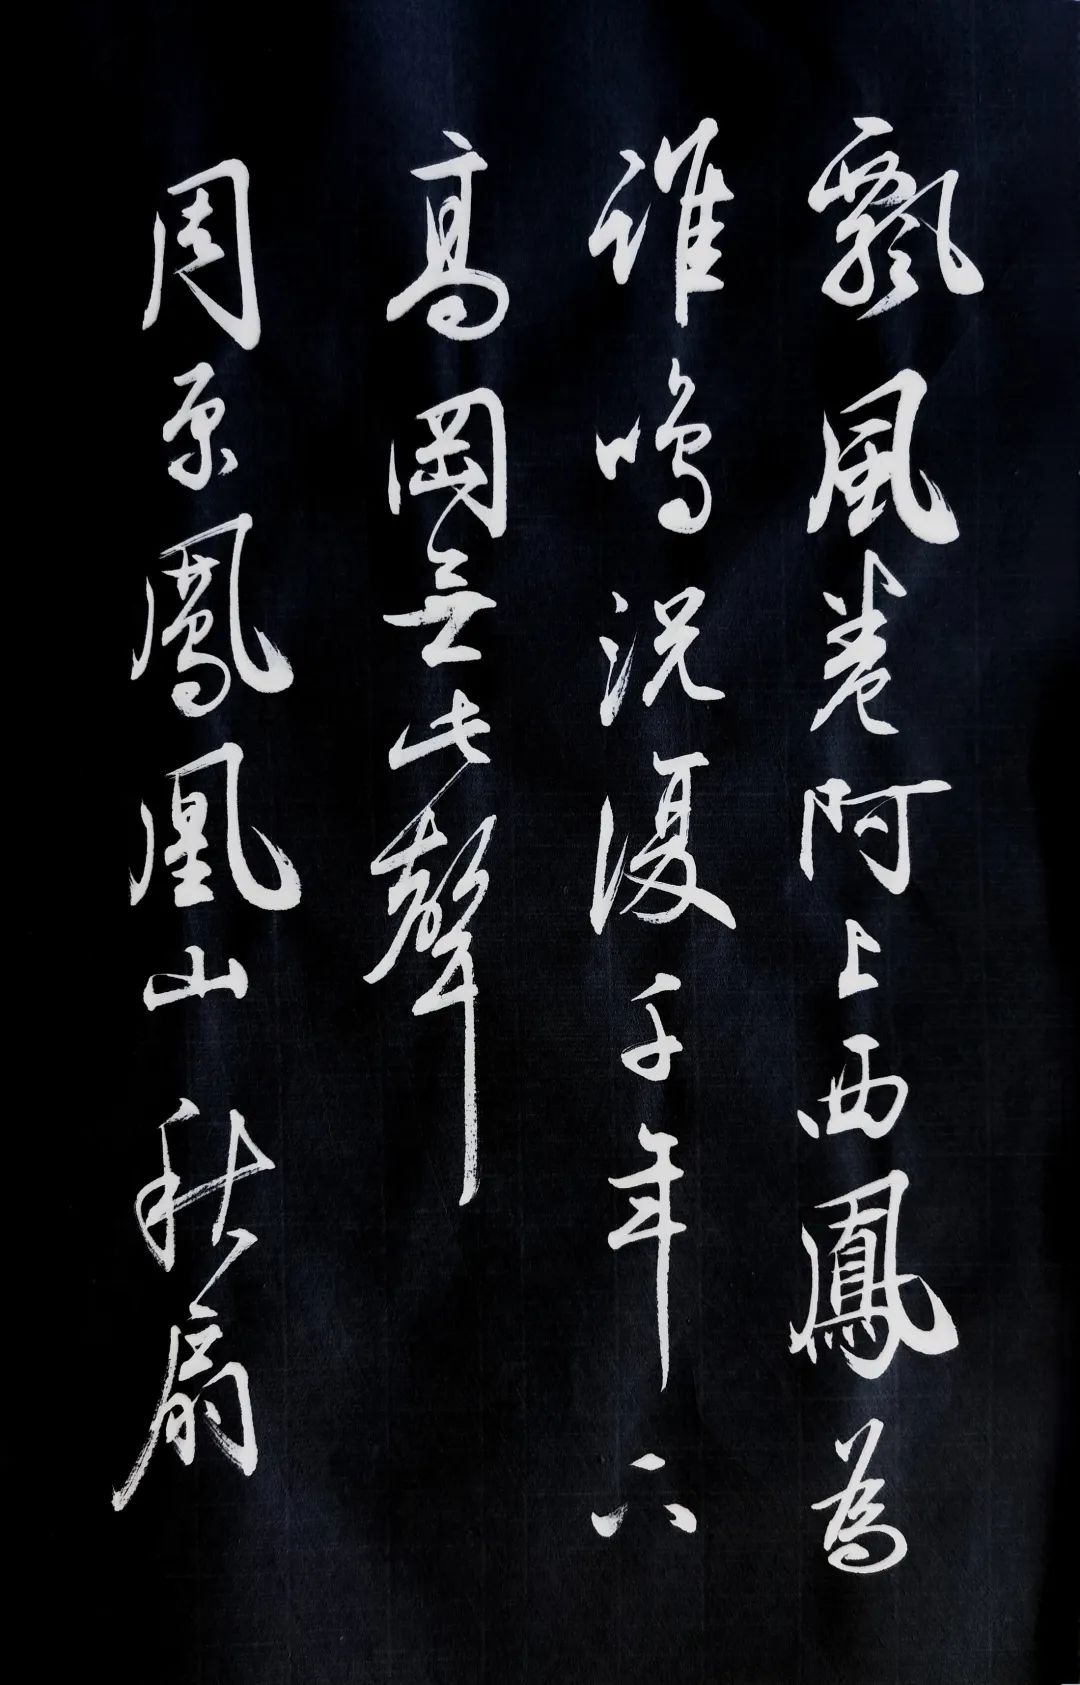 飄風卷阿上西鳳為
誰鳴況復千年下
高岡無此聲
周原鳳凰山 秋扇